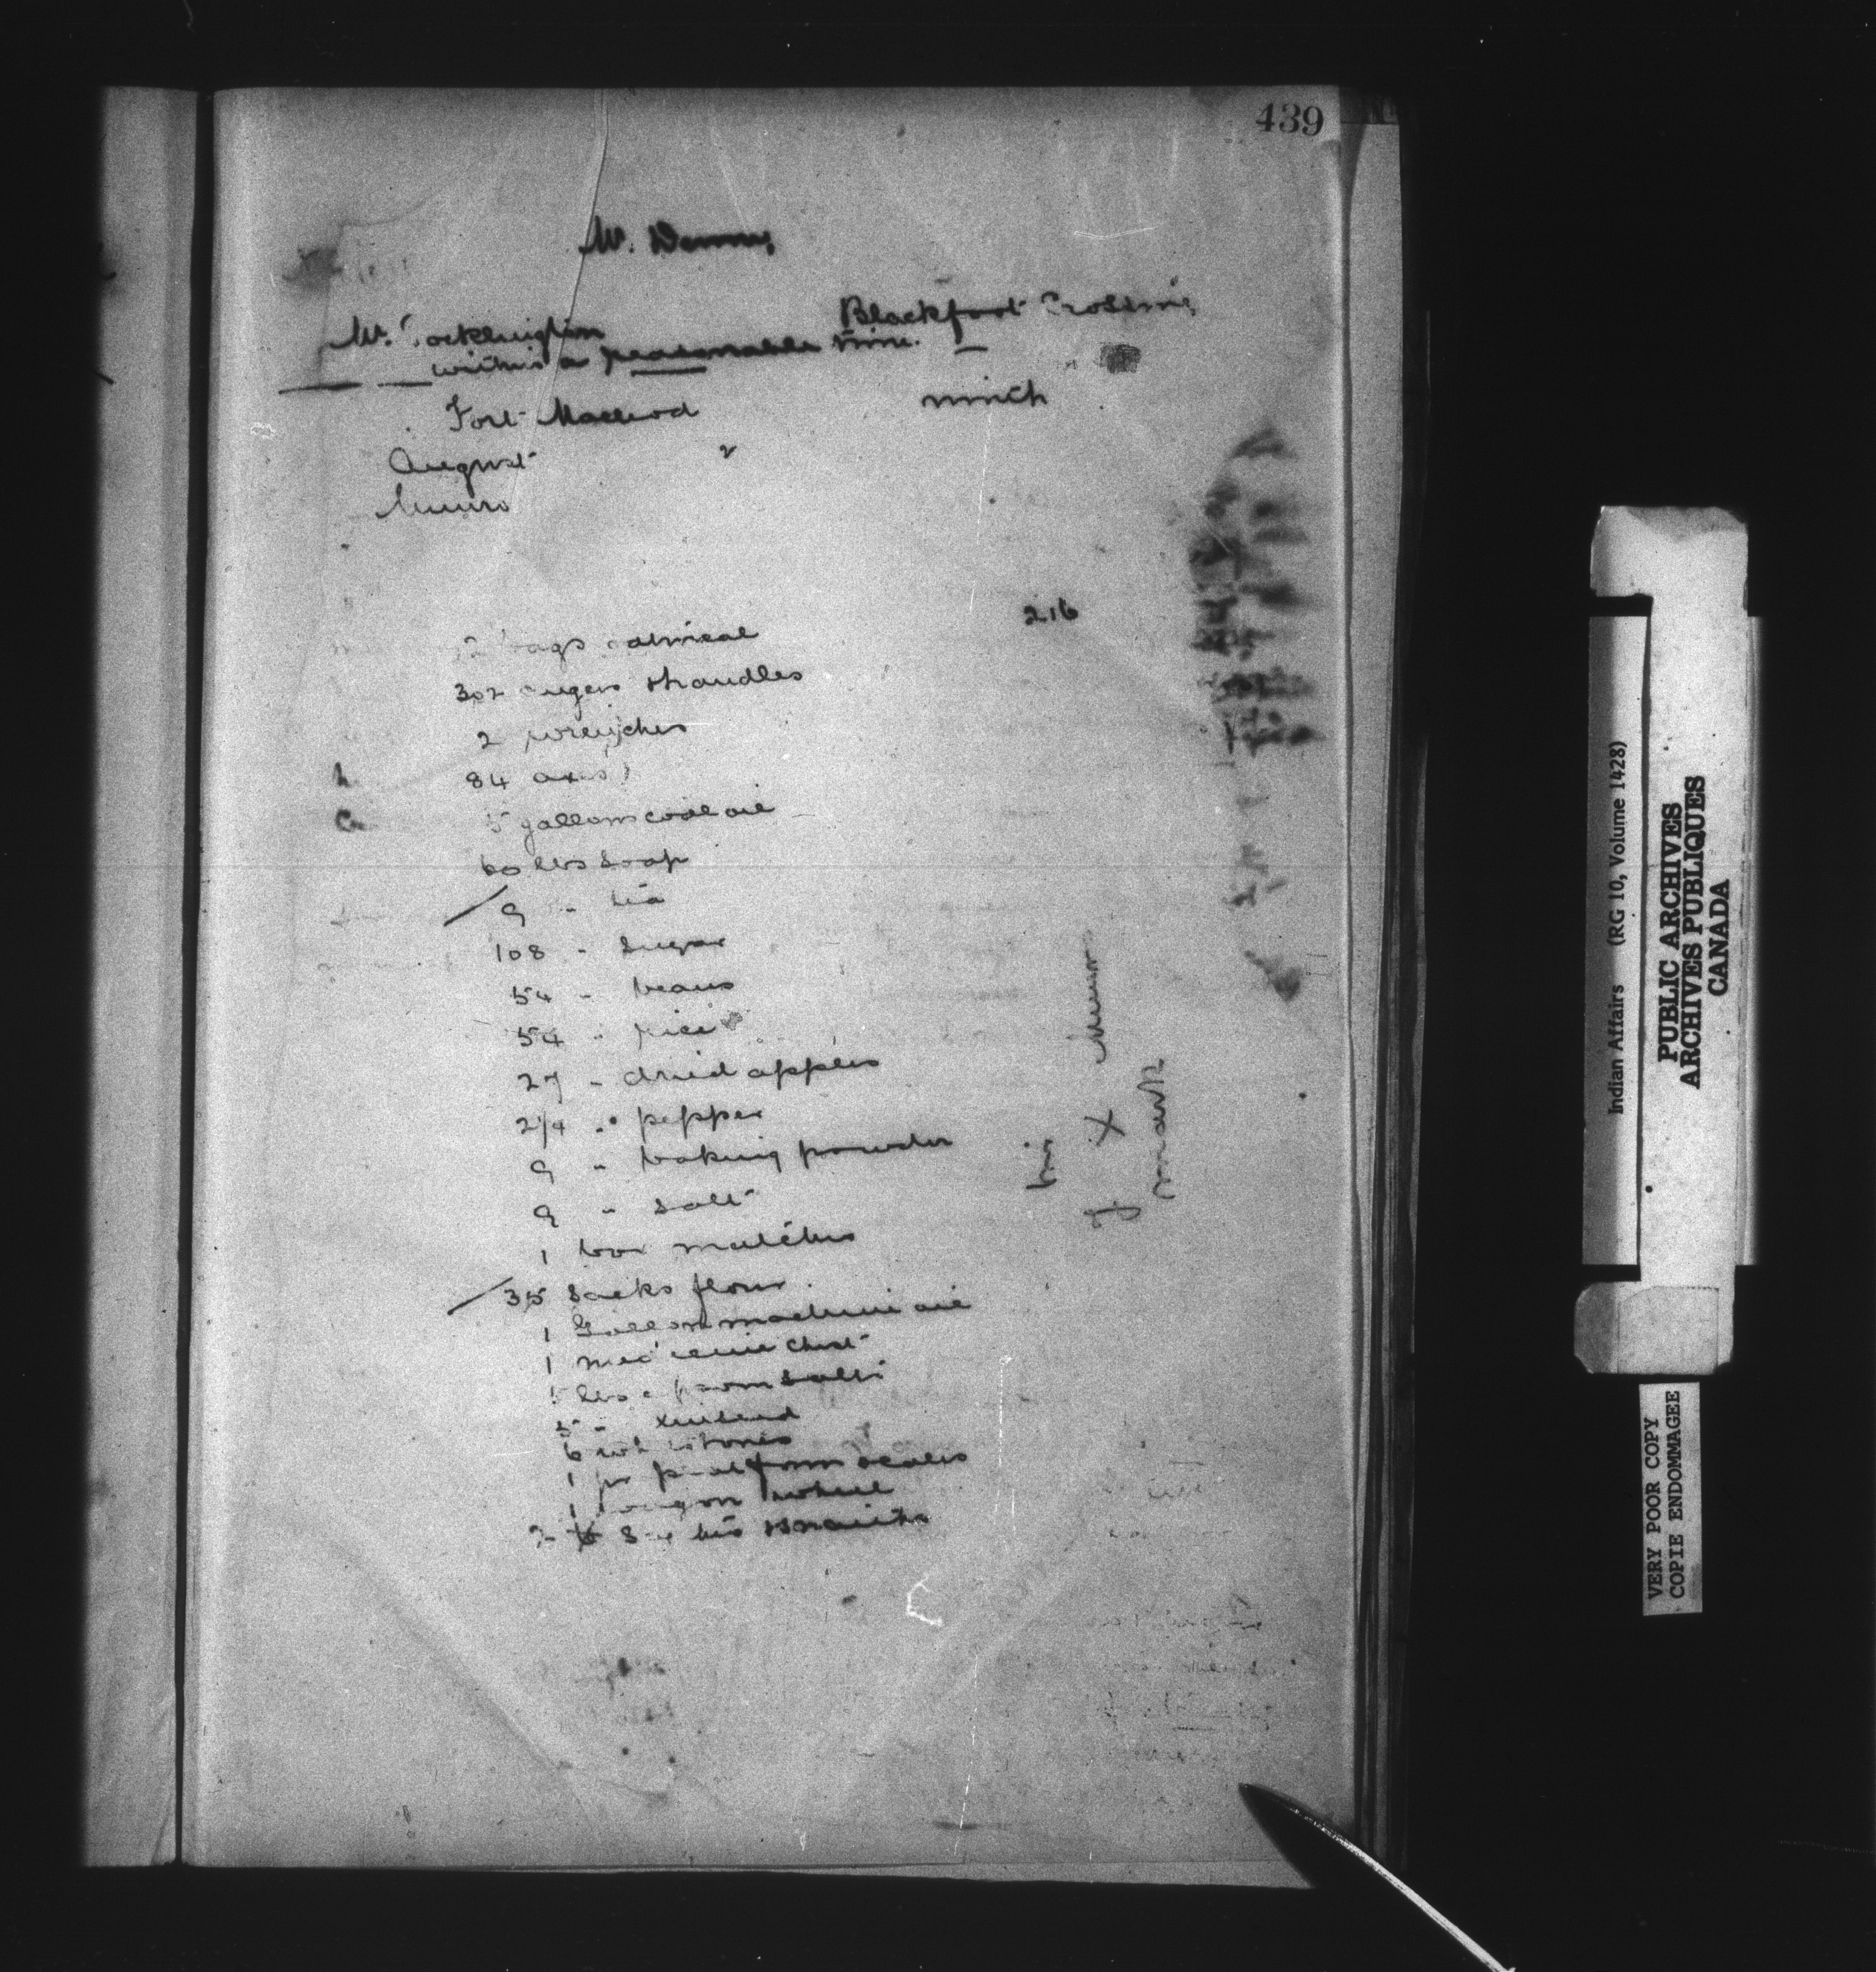 439
Mr. Denny
Blackfoot Crossing
Mr.
within a reasonable time.
Fort Macleod ninth
August
Munro
216
bags oatmeal
302 augers & handles
2 wrenches
84 axes
5 gallons coal oil
60 lbs soap
9 " tea
108 " sugar
54 " beans
54 " rice
27 " dried apples
2/4 " pepper
9 " baking powder
9 " salt
1 box matches
35 sacks flour
1 Gallon machine oil
1 medicine chest
5 lbs epsom salts
5 " linseed
6 whetstones
1 pr platform scales
1 wagon wheel
2 & snaiths
his
J X Munro
mark
Indian Affairs (RG 10, Volume 1428)
PUBLIC ARCHIVES
ARCHIVES PUBLIQUES
CANADA
VERY POOR COPY
COPIE ENDOMMAGEE